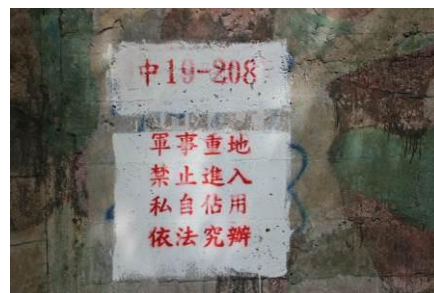 中19-208
軍事重地
禁止進入
私自佔用
依法究辦